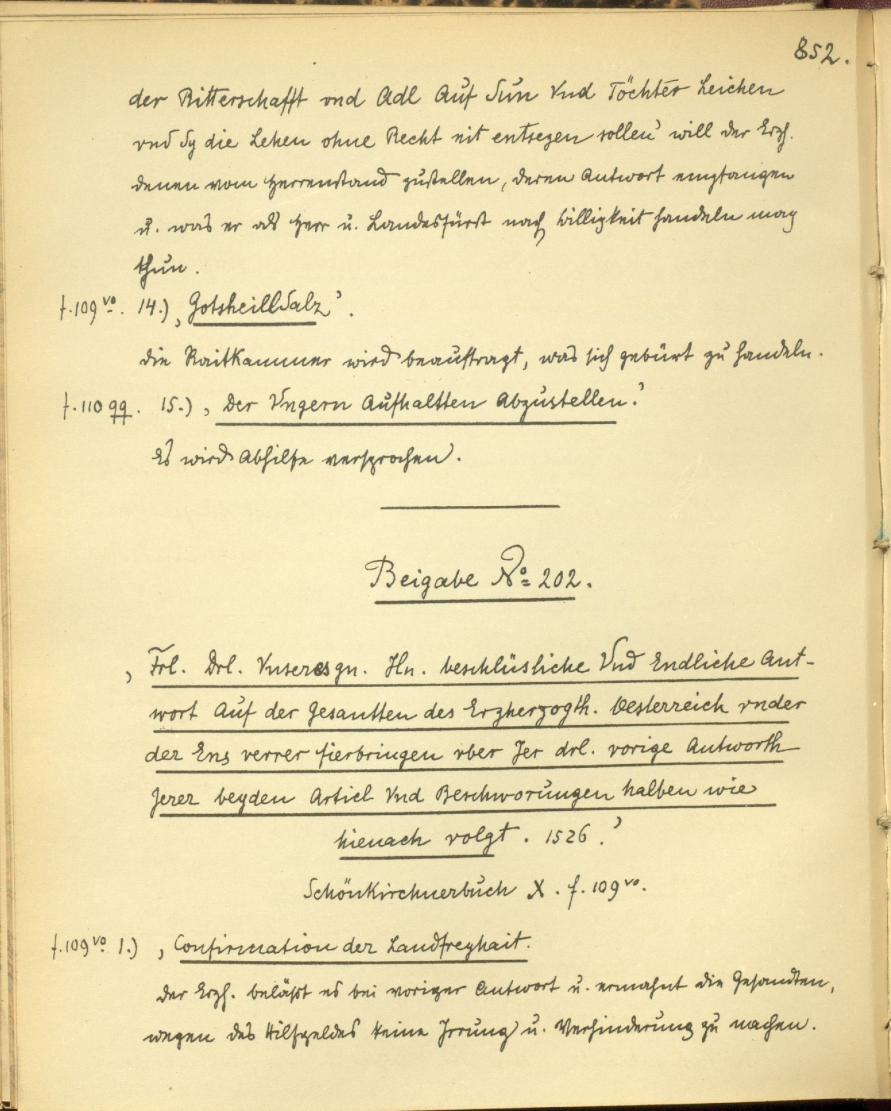 852.
der Ritterschafft vnd Adl Auf Sun Vnd Töchter Leichen
vnd Sy die Lehen ohne Recht nit entsezen sollen' will der Erzh.
denen vom Herrenstand zustellen, deren Antwort empfangen
u. was er als Herr u. Landesfürst nach billigkeit handeln mag
thun.
f. 109 vo. 14.) ‚Gotsheillsalz'.
die Raitkammer wird beauftragt, was sich gebürt zu handeln.
f. 110 qq. 15.) ‚Der Vngern Aufhaltten Abzustellen.'
Es wird Abhilfe versprochen.
Beigabe No. 202.
‚Frl. Drl. Vnseres gn. Hn. beschlüsliche Vnd Endliche Ant-
wort Auf der Gesantten des Erzherzogth. Oesterreich vnder
der Ens verrer fierbringen vber Jer drl. vorige Antworth
Jerer beyden Articl Vnd Beschworungen halben wie
hienach volgt. 1526.'
Schönkirchnerbuch X. f. 109 vo.
f. 109 vo 1.) ‚Confirmation der Landfreyhait.
der Erzh. beläßt es bei voriger Antwort u. ermahnt die Gesandten,
wegen des Hilfgeldes keine Irrung u. Verhinderung zu machen.